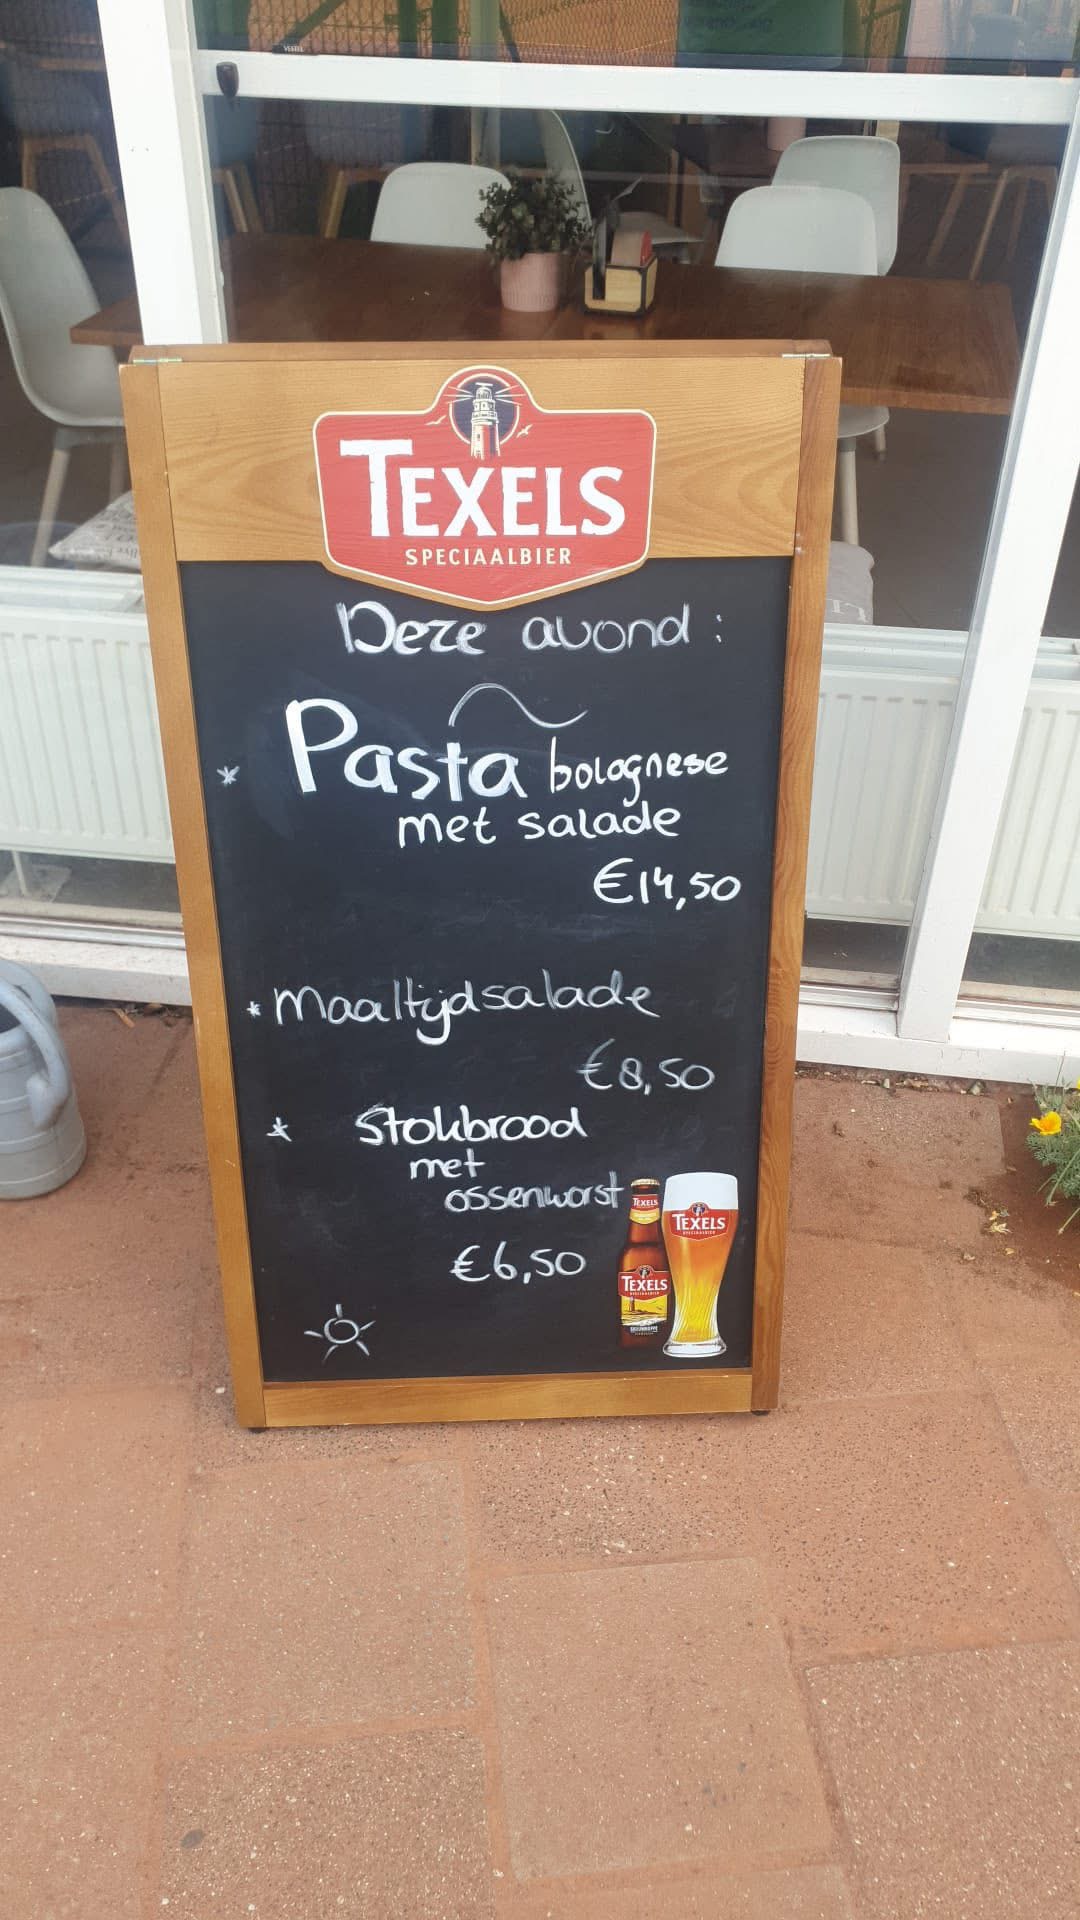 VESTEL
TEXELS
SPECIAALBIER
Deze avond:
* Pasta bolognese
met salade
€14,50
* Maaltijdsalade
€8,50
* Stokbrood
met
ossenworst
€6,50
TEXELS
TEXELS
SPECIAALBIER
TEXELS
SPECIAALBIER
SKUUMKOPPE